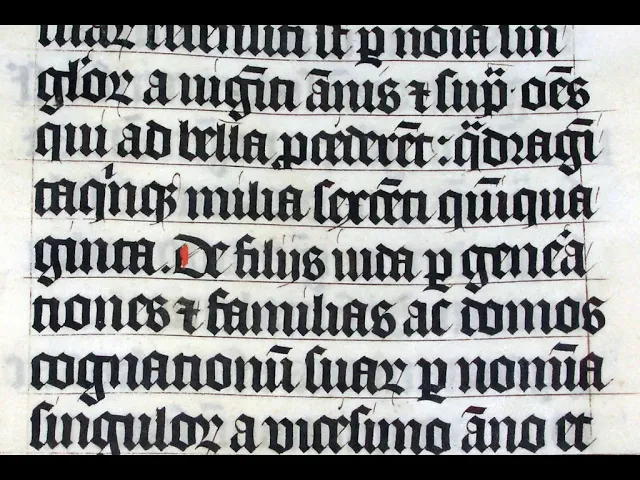 suaꝝ recensiti sūt p̱ noīa sin
gl'oꝝ a uigīti ānis ⁊ sup̄ · oēs
qui ad bella ꝓcederēt : q̈dragī
taqͥnqꝫ milia sexcēti quīqua
ginta. De filijs iuda ꝑ genera
tiones ⁊ familias ac domos
cognationū suaꝝ ꝑ nomīa
singuloꝝ a vicesimo āno et